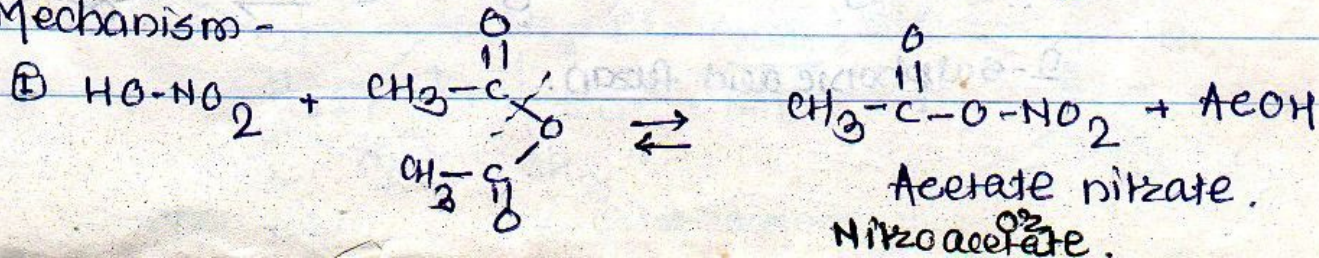 Mechanism -
① HO-NO2 + CH3-C(=O)-O-C(=O)-CH3 ⇌ CH3-C(=O)-O-NO2 + AcOH
Acetate nitrate.
or
Nitroacetate.